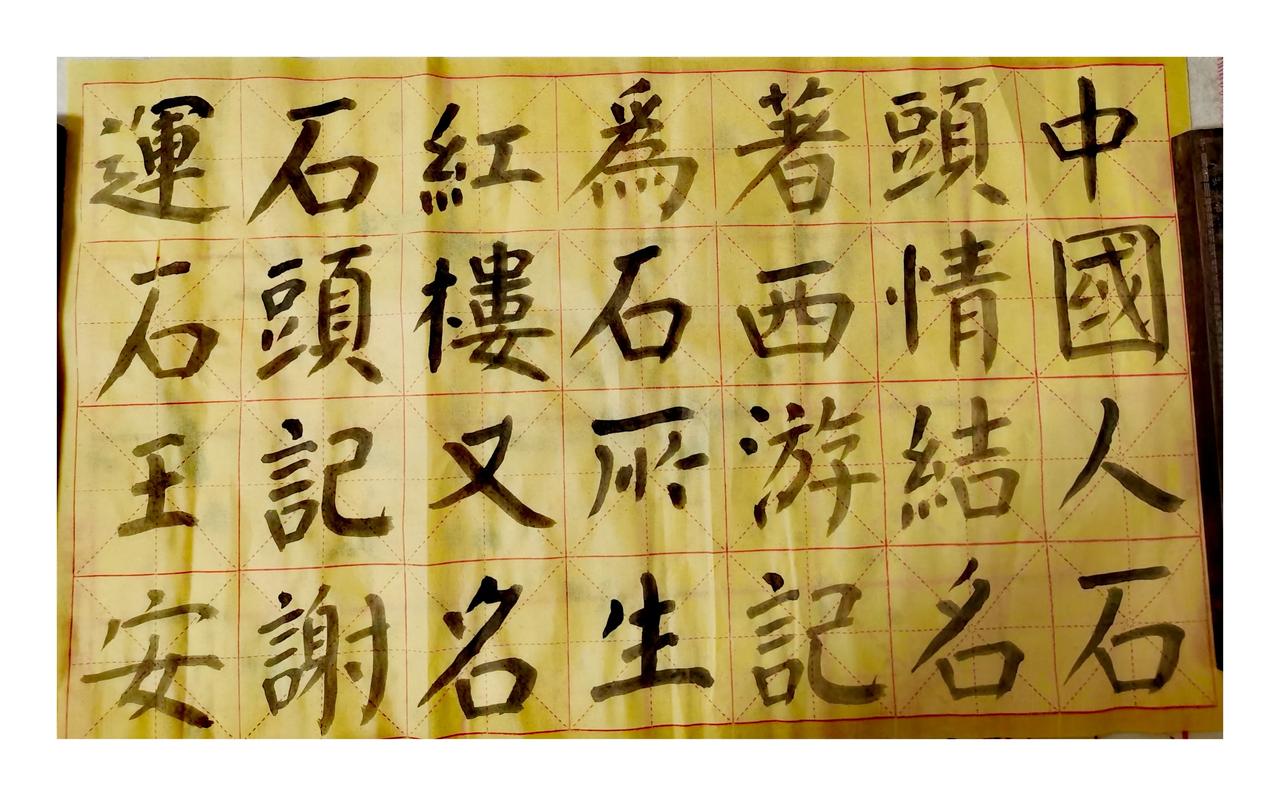 中國人石
頭情結名
著西游記
爲石所生
紅樓又名
石頭記謝
運石王安